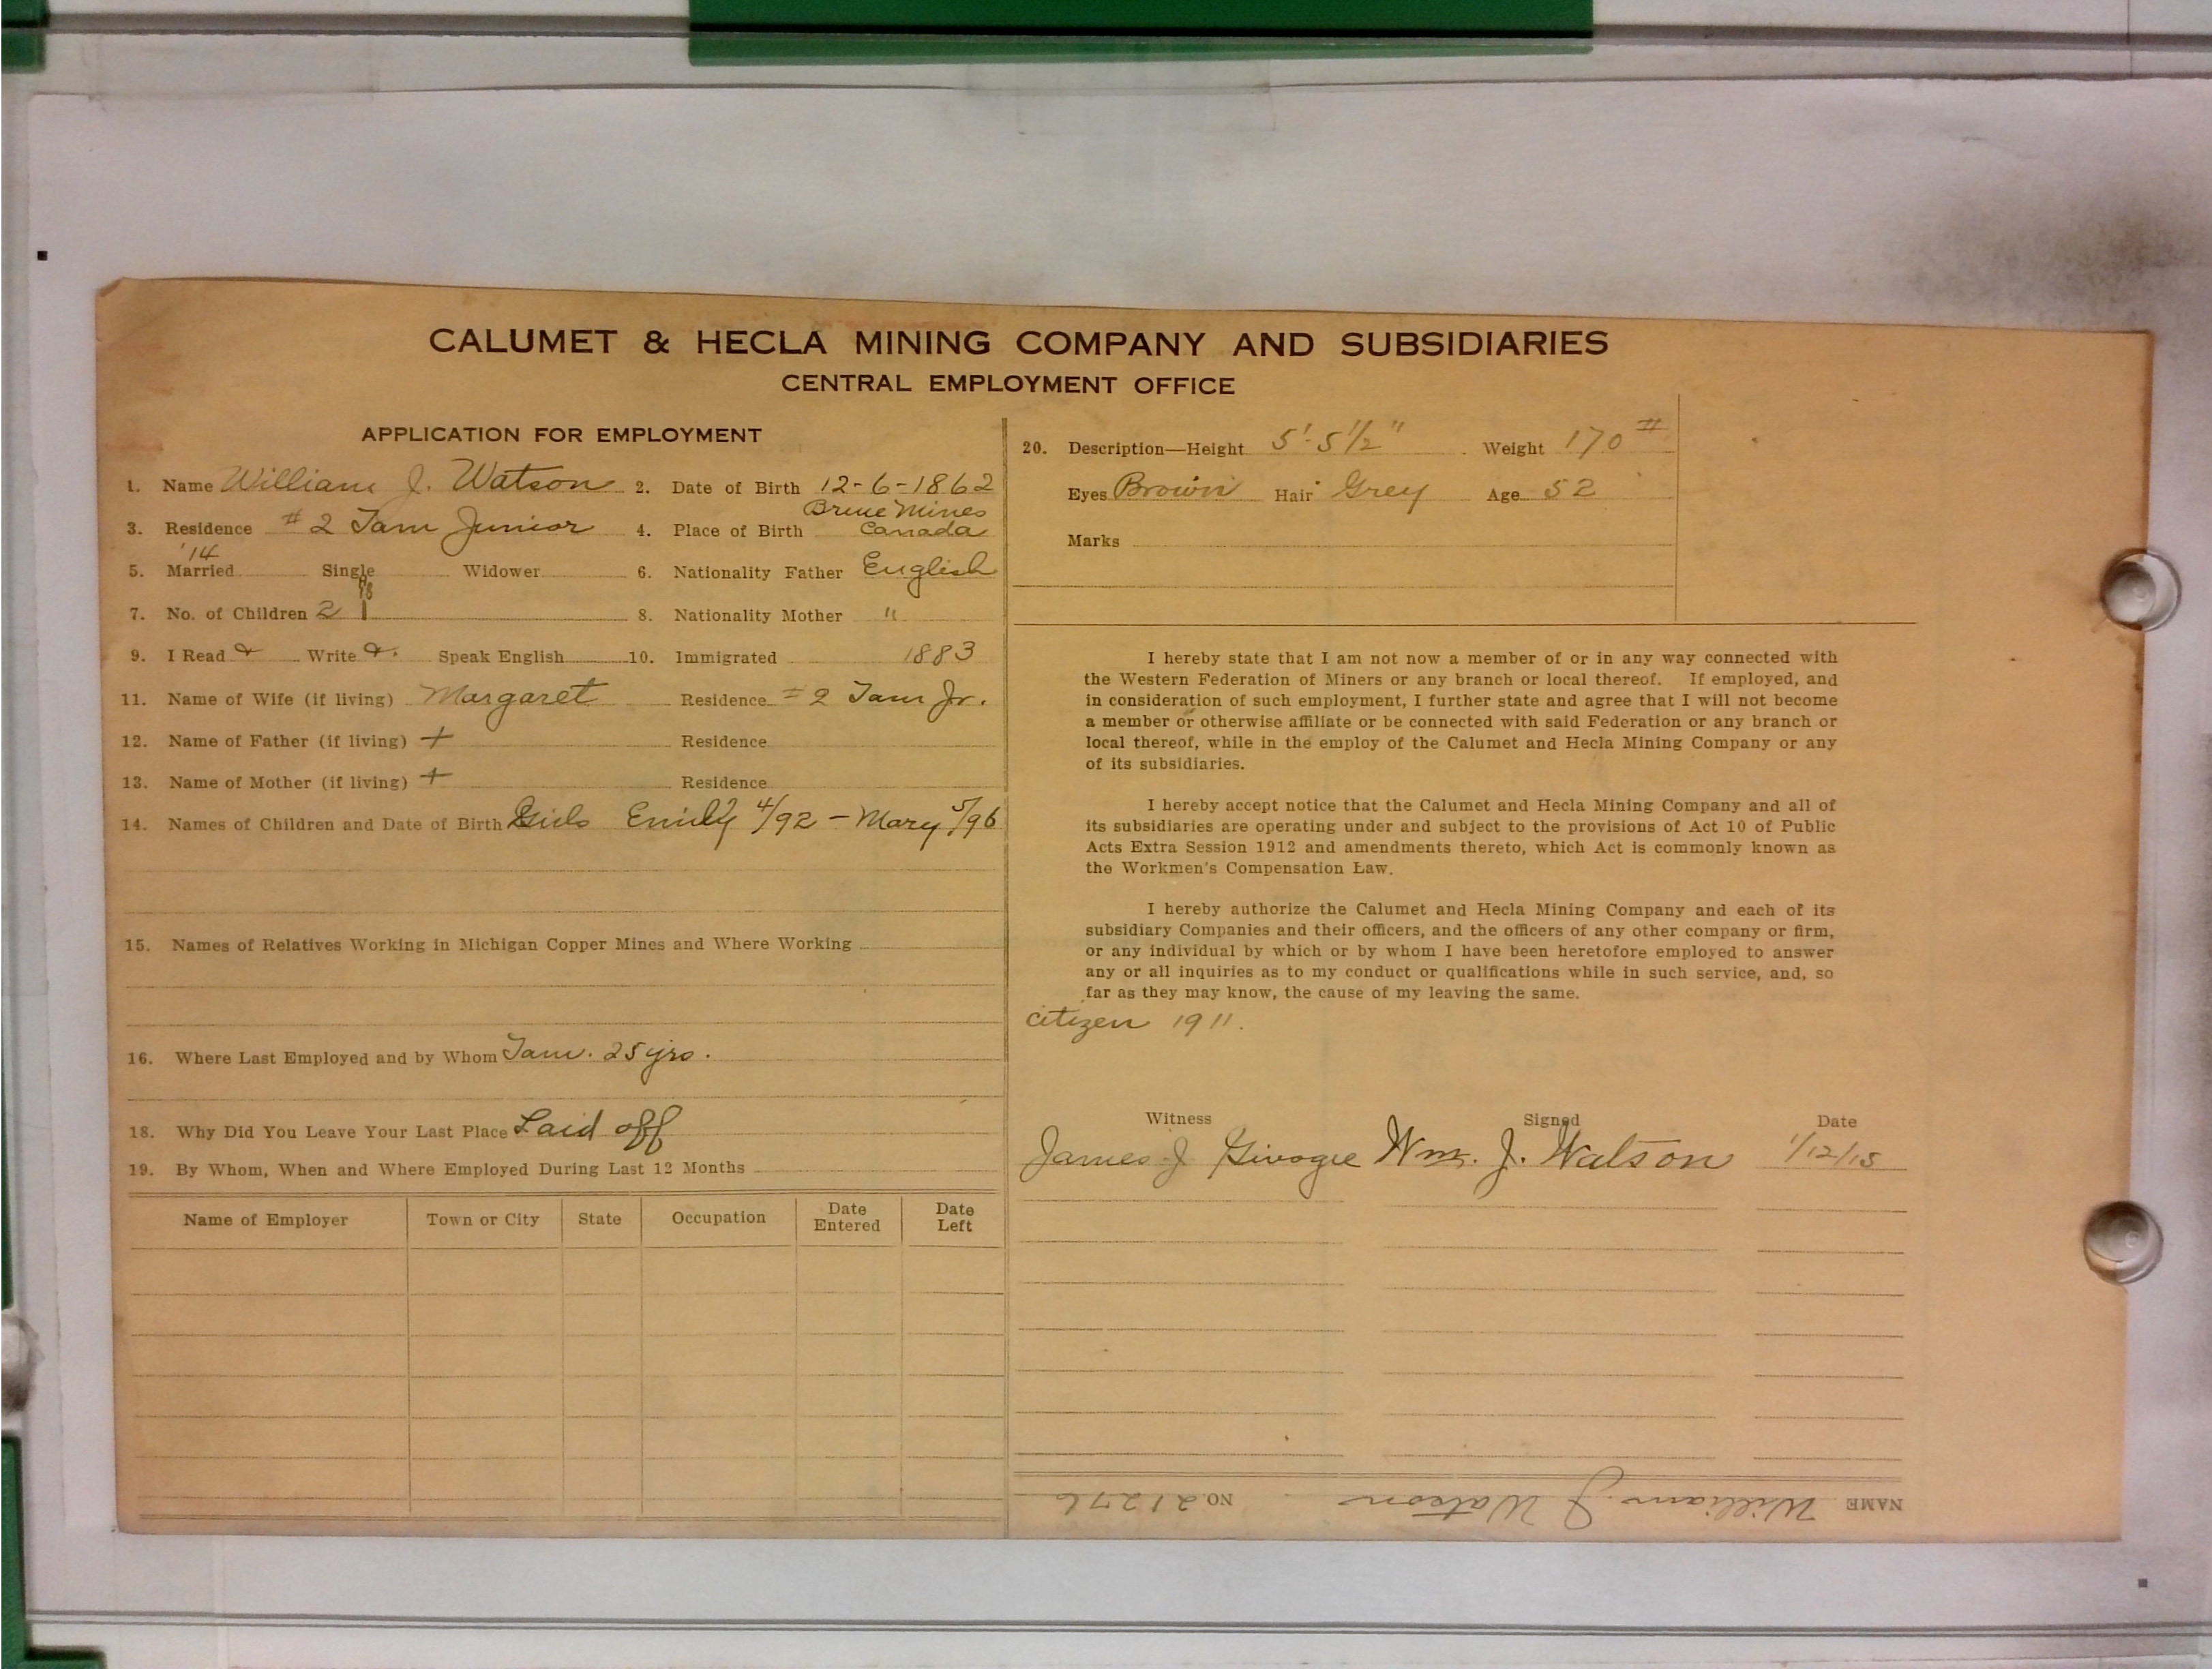 CALUMET & HECLA MINING COMPANY AND SUBSIDIARIES
CENTRAL EMPLOYMENT OFFICE
APPLICATION FOR EMPLOYMENT
1. Name William J. Watson 2. Date of Birth 12-6-1862
3. Residence #2 Tam Junior 4. Place of Birth Bruce Mines Canada
'14
5. Married Single Widower 6. Nationality Father English
7. No. of Children 2 8. Nationality Mother "
9. I Read Write Speak English 10. Immigrated 1883
11. Name of Wife (if living) Margaret Residence #2 Tam Jr.
12. Name of Father (if living) + Residence
13. Name of Mother (if living) + Residence
14. Names of Children and Date of Birth Girls Emily 4/92 - Mary 5/96
15. Names of Relatives Working in Michigan Copper Mines and Where Working
16. Where Last Employed and by Whom Tam. 25 yrs.
18. Why Did You Leave Your Last Place Laid off
19. By Whom, When and Where Employed During Last 12 Months
Name of Employer Town or City State Occupation Date Entered Date Left
20. Description—Height 5'-5 1/2" Weight 170#
Eyes Brown Hair Grey Age 52
Marks
I hereby state that I am not now a member of or in any way connected with
the Western Federation of Miners or any branch or local thereof. If employed, and
in consideration of such employment, I further state and agree that I will not become
a member or otherwise affiliate or be connected with said Federation or any branch or
local thereof, while in the employ of the Calumet and Hecla Mining Company or any
of its subsidiaries.
I hereby accept notice that the Calumet and Hecla Mining Company and all of
its subsidiaries are operating under and subject to the provisions of Act 10 of Public
Acts Extra Session 1912 and amendments thereto, which Act is commonly known as
the Workmen's Compensation Law.
I hereby authorize the Calumet and Hecla Mining Company and each of its
subsidiary Companies and their officers, and the officers of any other company or firm,
or any individual by which or by whom I have been heretofore employed to answer
any or all inquiries as to my conduct or qualifications while in such service, and, so
far as they may know, the cause of my leaving the same.
citizen 1911.
Witness Signed Date
James J Wm. J. Watson 1/12/15
NAME William J Watson NO. 21276